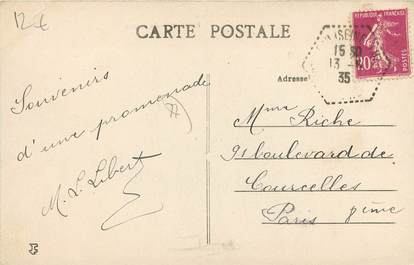 12€
CARTE POSTALE
REPUBLIQUE FRANÇAISE
20
POSTES
15 30
13
35
Adresse
Souvenirs
d'une promenade
M. L. Libert
Mme Riche
91 boulevard de
Courcelles
Paris